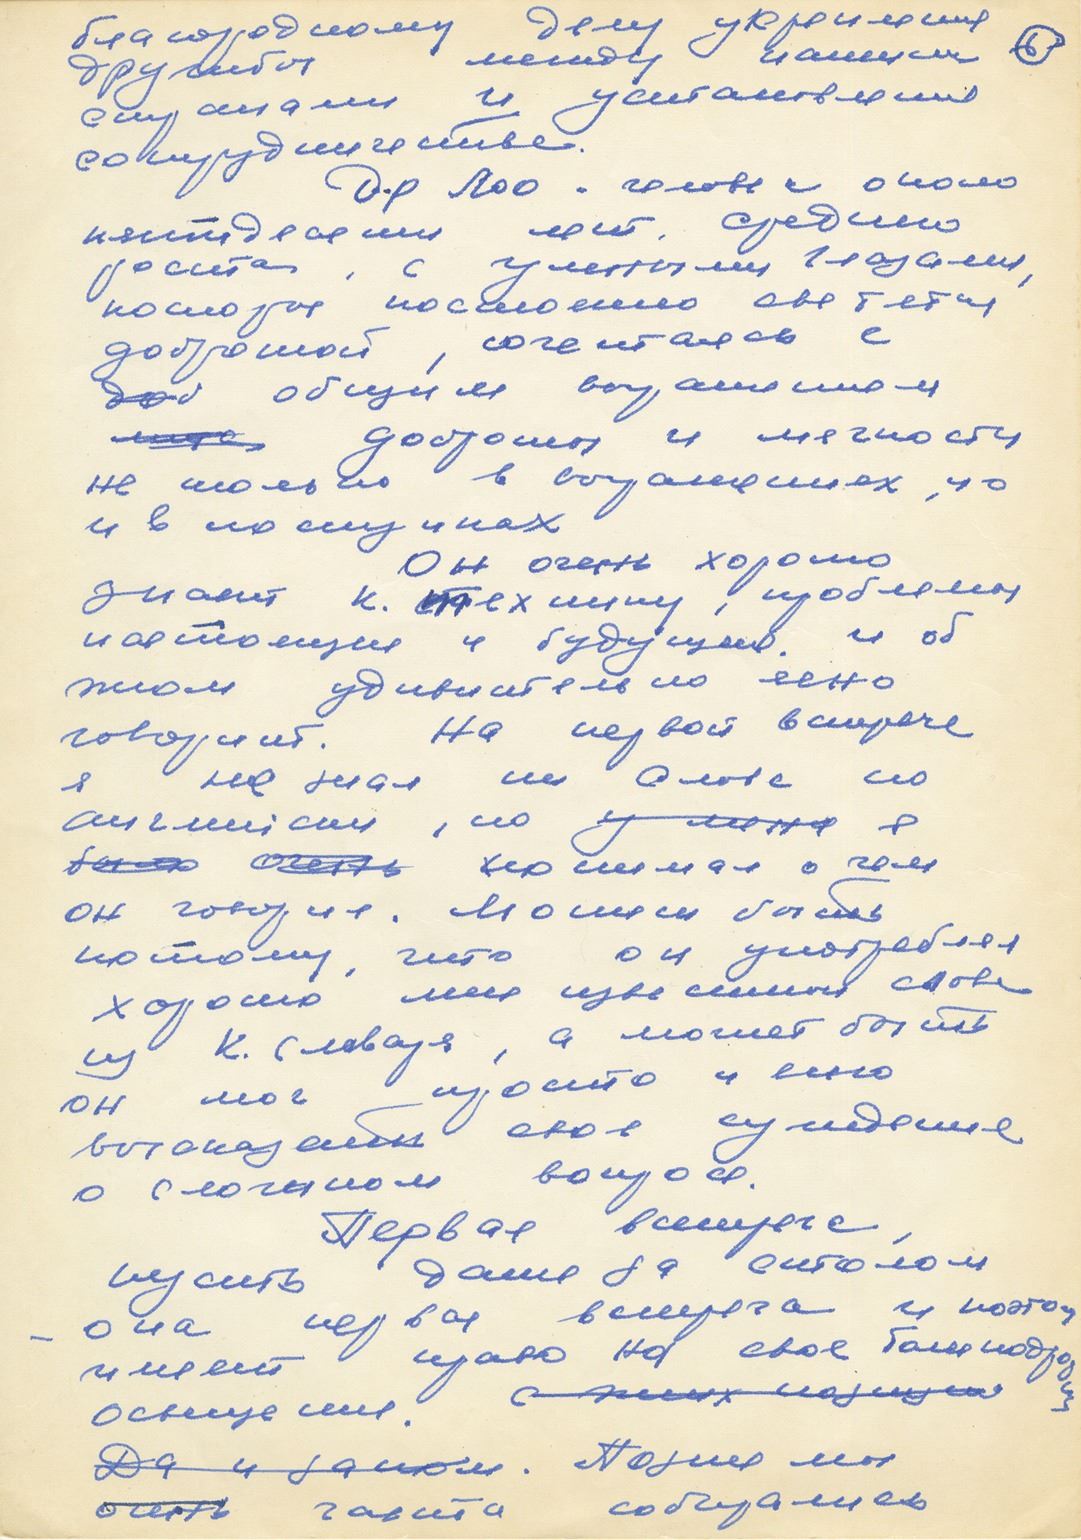 благородному делу укрепления 6
дружбы между нашими
странами и установления
сотрудничества.
Д-р Лоо - человек около
пятидесяти лет, среднего
роста, с умными глазами,
которые постоянно светятся
добротой, сочетаясь с
доб общим выражением
лица доброты и мягкости
не только в выражениях, но
и в поступках
Он очень хорошо
знает к. технику, проблемы
настоящие и будущие. и об
этом удивительно ясно
говорит. На первой встрече
я не знал ни слова по
английски, но у меня я
было очень понимал о чем
он говорил. Может быть
потому, что он употреблял
хорошо мне известные слова
из К. словаря, а может быть
он мог просто и ясно
высказать свое суждение
о сложном вопросе.
Первая встреча,
пусть даже за столом
- она первая встреча и поэтому
имеет право на свое более подробное
освещение. с этих позиций
Да и затем. Позже мы
очень часто собирались